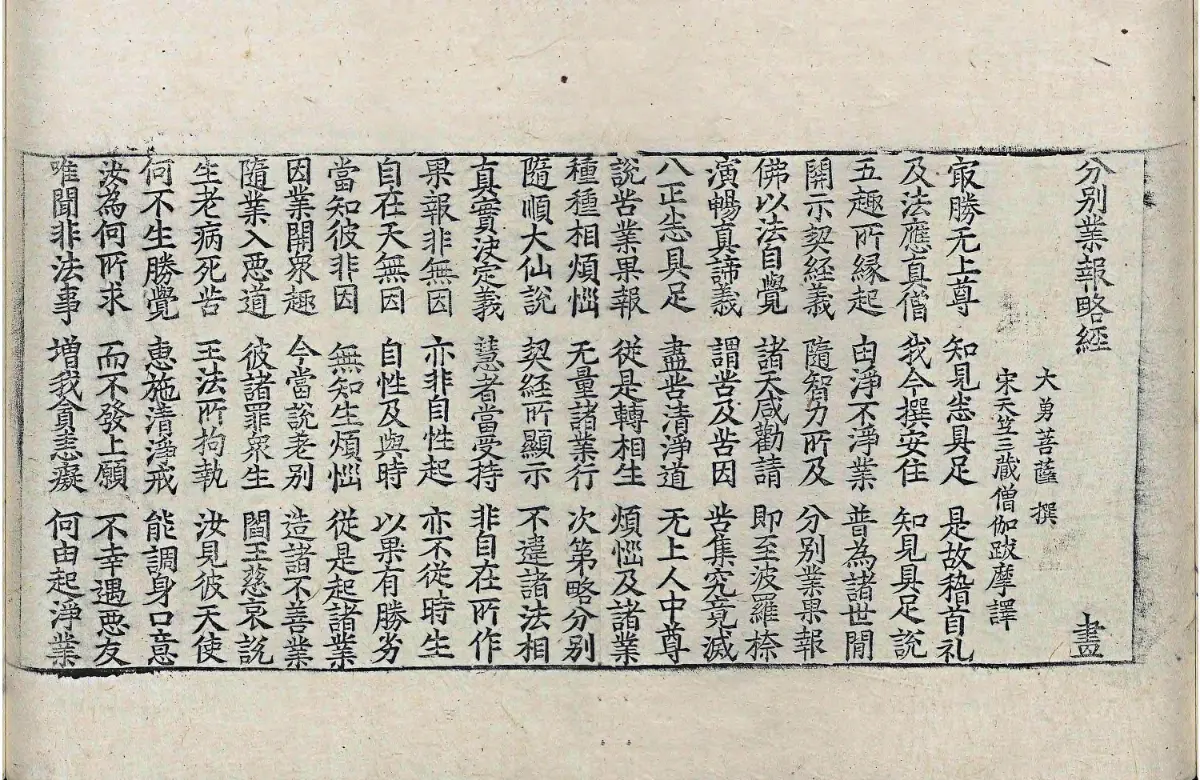 分別業報略經 盡
大勇菩薩 撰
宋天竺三藏僧伽跋摩譯
㝡勝无上尊 知見悉具足 是故稽首礼
及法應真僧 我今撰安住 知見具足說
五趣所緣起 由淨不淨業 普為諸世間
開示契經義 隨智力所及 分別業果報
佛以法自覺 諸天咸勸請 即至波羅㮈
演暢真諦義 謂苦及苦因 苦集究竟滅
八正悉具足 盡苦清淨道 无上人中尊
說苦業果報 從是轉相生 煩惱及諸業
種種相煩惱 无量諸業行 次第略分別
隨順大仙說 契經所顯示 不違諸法相
真實決定義 慧者當受持 非自在所作
果報非無因 亦非自性起 亦不從時生
自在天無因 自性及與時 以果有勝劣
當知彼非因 無知生煩惱 從是起諸業
因業開眾趣 今當說差別 造諸不善業
隨業入惡道 彼諸罪眾生 閻王慈哀說
生老病死苦 王法所拘執 汝見彼天使
何不生勝覺 惠施清淨戒 能調身口意
汝為何所求 而不發上願 不幸遇惡友
唯聞非法事 增我貪恚癡 何由起淨業